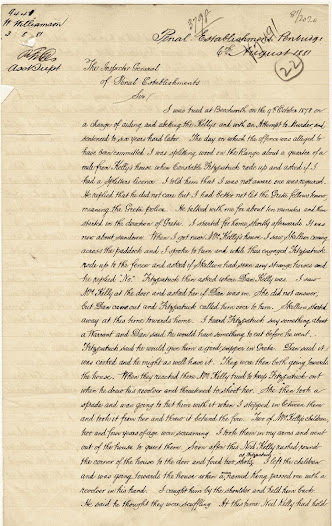 9448
W Williamson
Penal Establishment Pentridge
6th August 1881
22
The Inspector General
of Penal Establishments
Sir,
I was tried at Beechworth on the 9th October 1878 on
a charge of aiding and abetting the Kellys and with an Attempt to Murder and
sentenced to six years hard labor. The day on which the offence was alleged to
have been committed I was splitting wood on the Range about a quarter of a
mile from Kelly's house when Constable Fitzpatrick rode up and asked if I
had a splitters licence. I told him that I was not aware one was required.
He replied that he did not care but I had better not let the Greta fellows know
meaning the Greta police. He talked with me for about ten minutes and then
started in the direction of Greta. I started for home shortly afterwards. It was
now about sundown. When I got near Mrs Kelly's house I saw Skillion coming
across the paddock and I waited to turn and while thus engaged Fitzpatrick
rode up to the fence and asked if Skillion had seen any strange horses and
he replied "No". Fitzpatrick then asked where Dan Kelly was. I saw
Mrs Kelly at the door and asked her if Dan was in, she did not answer,
but Dan came out and Fitzpatrick called him over to him. Skillion started
away at this time towards home. I heard Fitzpatrick say something about
a Warrant and Dan said he would have something to eat before he went.
Fitzpatrick said he would give him a good supper in Greta. Dan said it
was cooked and he might as well have it. They were then both going towards
the house. When they reached there Mrs Kelly tried to keep Fitzpatrick out
when he drew his revolver and threatened to shoot her. She then took a
spade and was going to hit him with it when I stepped in between them
and took it from her and threw it behind the fire. Two of Mrs Kelly's children,
two and four years of age were screaming. I took them in my arms and went
out of the house to quiet them. Soon after this Ned Kelly rushed round
the corner of the house to the door and fired two shots. I left the children
at Fitzpatrick
and was going towards the house when a named King passed me with a
revolver in his hand. I caught him by the shoulder and held him back.
He said he thought they were scuffling. At this time Ned Kelly had hold